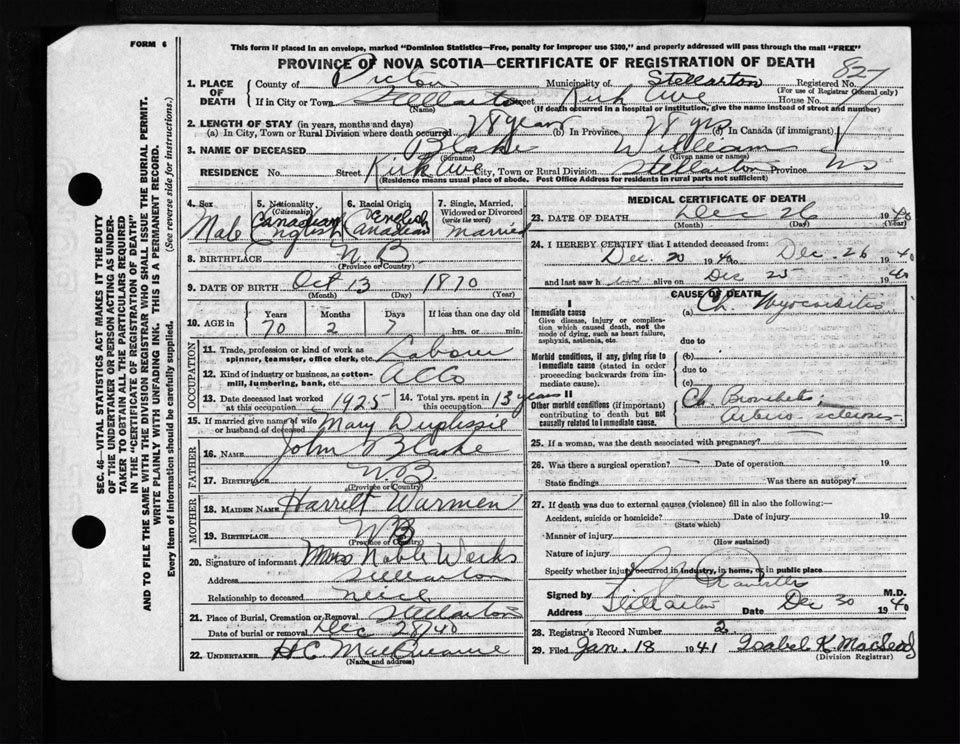 FORM 6
This form if placed in an envelope, marked "Dominion Statistics—Free, penalty for improper use $300," and properly addressed will pass through the mail "FREE"
PROVINCE OF NOVA SCOTIA—CERTIFICATE OF REGISTRATION OF DEATH
827
1. PLACE OF DEATH
County of Pictou Municipality of Stellarton Registered No.
(For use of Registrar General only)
If in City or Town Stellarton Street Kirk Ave House No.
(Name) (If death occurred in a hospital or institution, give the name instead of street and number)
2. LENGTH OF STAY (in years, months and days)
(a) In City, Town or Rural Division where death occurred 28 years (b) In Province 28 yrs (c) In Canada (if immigrant)
3. NAME OF DECEASED Blake William
(Surname) (Given name or names)
RESIDENCE No. Street Kirk Ave City, Town or Rural Division Stellarton Province NS
(Residence means usual place of abode. Post Office Address for residents in rural parts not sufficient)
4. Sex 5. Nationality (Citizenship) 6. Racial Origin 7. Single, Married, Widowed or Divorced (write the word)
Male Canadian English English Canadian married
8. BIRTHPLACE N.B.
(Province or Country)
9. DATE OF BIRTH Oct 13 1870
(Month) (Day) (Year)
10. AGE in Years Months Days If less than one day old
70 2 7 hrs. or min.
OCCUPATION
11. Trade, profession or kind of work as spinner, teamster, office clerk, etc. Labour
12. Kind of industry or business, as cotton-mill, lumbering, bank, etc. ACCo
13. Date deceased last worked at this occupation 1925 14. Total yrs. spent in this occupation 13 years
15. If married give name of wife or husband of deceased Mary Duplissie
FATHER
16. NAME John Blake
17. BIRTHPLACE N.B.
(Province or Country)
MOTHER
18. MAIDEN NAME Harriett Warmen
19. BIRTHPLACE NB
(Province or Country)
20. Signature of informant Mrs Noble Weeks
Address Stellarton
Relationship to deceased neice
21. Place of Burial, Cremation or Removal Stellarton
Date of burial or removal Dec 28/40
22. UNDERTAKER H.C.
(Name and address)
MEDICAL CERTIFICATE OF DEATH
23. DATE OF DEATH Dec 26 1940
(Month) (Day) (Year)
24. I HEREBY CERTIFY that I attended deceased from:
Dec. 20 1940 to Dec. 26 1940
and last saw him alive on Dec 25 1940
CAUSE OF DEATH
I
Immediate cause
Give disease, injury or complication which caused death, not the mode of dying, such as heart failure, asphyxia, asthenia, etc.
(a) Ch. Myocarditis
due to
Morbid conditions, if any, giving rise to immediate cause (stated in order proceeding backwards from immediate cause).
(b)
due to
(c)
II
Other morbid conditions (if important) contributing to death but not causally related to immediate cause.
Ch. Bronchitis
Arterio-sclerosis
25. If a woman, was the death associated with pregnancy?
26. Was there a surgical operation? — Date of operation 19
State findings Was there an autopsy?
27. If death was due to external causes (violence) fill in also the following:
Accident, suicide or homicide? Date of injury 19
(State which)
Manner of injury
(How sustained)
Nature of injury
Specify whether injury occurred in industry, in home, or in public place
Signed by M.D.
Address Stellarton Date Dec 30 1940
28. Registrar's Record Number 2
29. Filed Jan. 18 1941 Isabel K. MacLeod
(Division Registrar)
SEC. 46—VITAL STATISTICS ACT MAKES IT THE DUTY
OF THE UNDERTAKER OR PERSON ACTING AS UNDER-
TAKER TO OBTAIN ALL THE PARTICULARS REQUIRED
IN THE "CERTIFICATE OF REGISTRATION OF DEATH"
AND TO FILE THE SAME WITH THE DIVISION REGISTRAR WHO SHALL ISSUE THE BURIAL PERMIT.
WRITE PLAINLY WITH UNFADING INK. THIS IS A PERMANENT RECORD.
Every item of information should be carefully supplied. (See reverse side for instructions.)